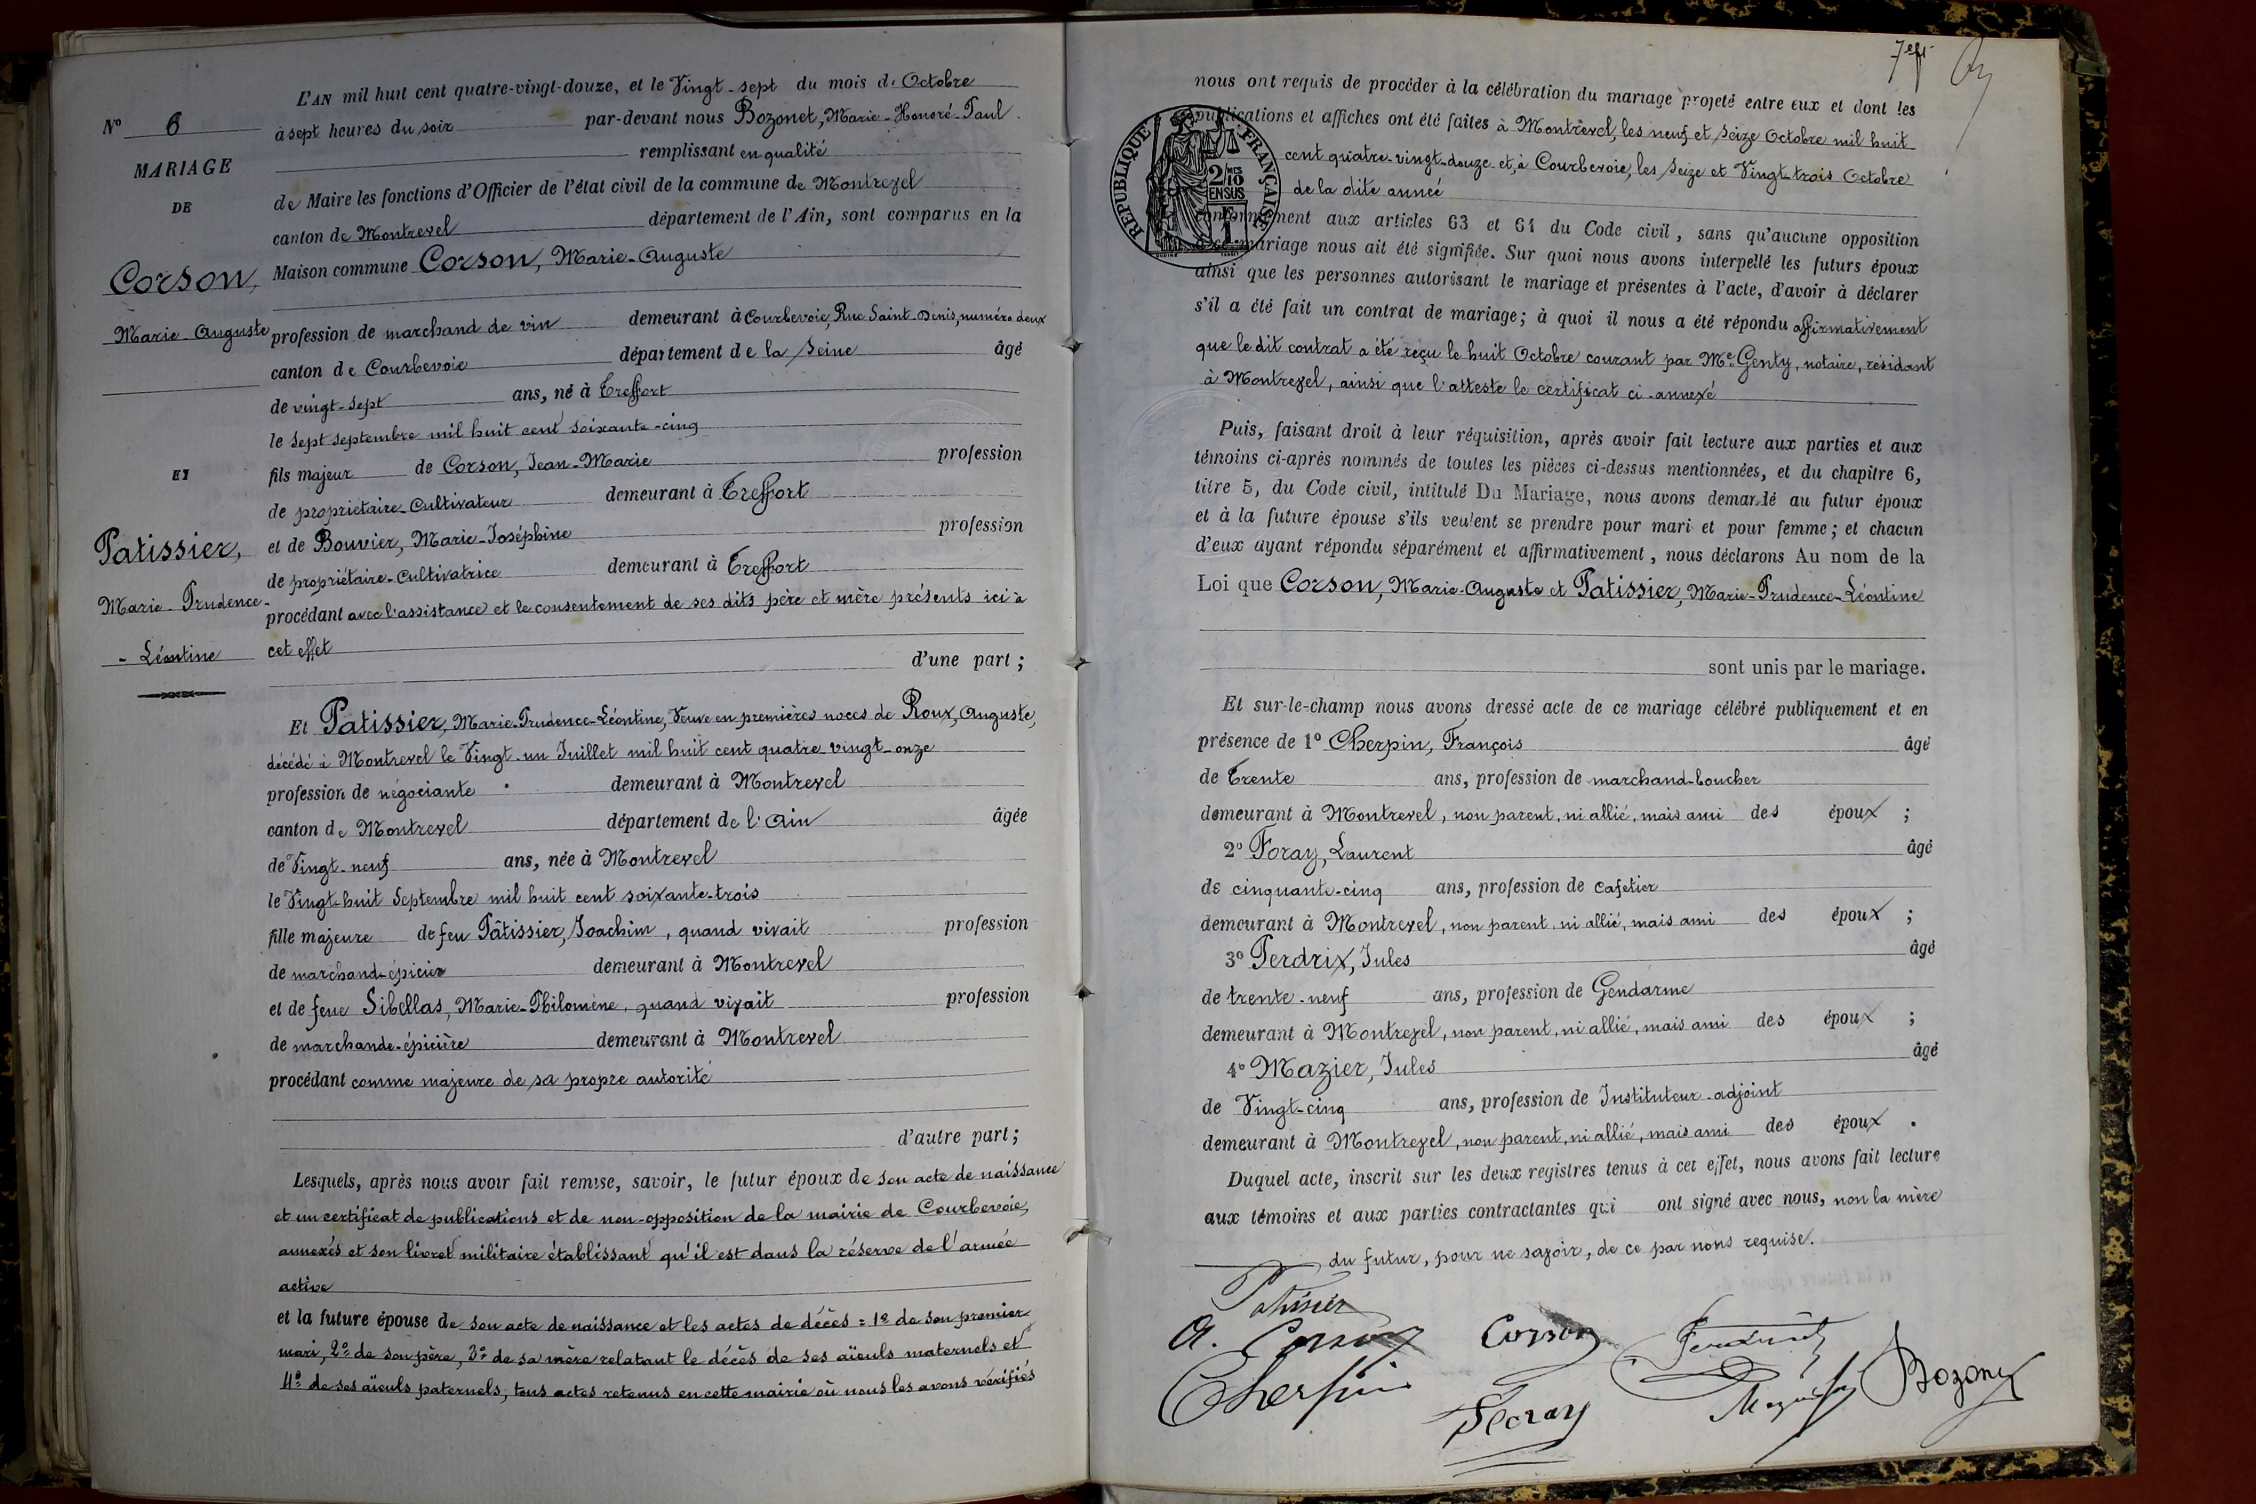 L'AN mil huit cent quatre-vingt-douze, et le Vingt-sept du mois de Octobre
N° 6
à sept heures du soir par-devant nous Bozonet, Marie-Honoré-Paul
MARIAGE
remplissant en qualité
DE
de Maire les fonctions d'Officier de l'état civil de la commune de Montrevel
canton de Montrevel département de l'Ain, sont comparus en la
Corson,
Maison commune Corson, Marie-Auguste
Marie-Auguste
profession de marchand de vin demeurant à Courbevoie, Rue Saint-Denis, numéro deux
canton de Courbevoie département de la Seine âgé
de vingt-sept ans, né à Treffort
le sept septembre mil huit cent soixante-cinq
ET
fils majeur de Corson, Jean-Marie profession
de propriétaire-cultivateur demeurant à Treffort
Patissier,
et de Bouvier, Marie-Joséphine profession
de propriétaire-cultivatrice demeurant à Treffort
Marie-Prudence-
procédant avec l'assistance et le consentement de ses dits père et mère présents ici à
- Léontine
cet effet
d'une part ;
Et Patissier, Marie-Prudence-Léontine, Veuve en premières noces de Roux, Auguste,
décédé à Montrevel le Vingt-un Juillet mil huit cent quatre vingt-onze
profession de négociante demeurant à Montrevel
canton de Montrevel département de l'Ain âgée
de Vingt-neuf ans, née à Montrevel
le Vingt-huit Septembre mil huit cent soixante-trois
fille majeure de feu Pâtissier, Joachim, quand vivait profession
de marchand-épicier demeurant à Montrevel
et de feue Sibellas, Marie-Philomène, quand vivait profession
de marchande-épicière demeurant à Montrevel
procédant comme majeure de sa propre autorité
d'autre part ;
Lesquels, après nous avoir fait remise, savoir, le futur époux de son acte de naissance
et un certificat de publications et de non-opposition de la mairie de Courbevoie,
annexés et son livret militaire établissant qu'il est dans la réserve de l'armée
active
et la future épouse de son acte de naissance et les actes de décès = 1° de son premier
mari, 2° de son père, 3° de sa mère relatant le décès de ses aïeuls maternels et
4° de ses aïeuls paternels, tous actes retenus en cette mairie où nous les avons vérifiés
nous ont requis de procéder à la célébration du mariage projeté entre eux et dont les
publications et affiches ont été faites à Montrevel, les neuf et seize Octobre mil huit
cent quatre-vingt-douze et, à Courbevoie, les Seize et Vingt-trois Octobre
de la dite année
conformément aux articles 63 et 64 du Code civil, sans qu'aucune opposition
à ce mariage nous ait été signifiée. Sur quoi nous avons interpellé les futurs époux
REPUBLIQUE FRANÇAISE
2/10 EN SUS
1 F
ainsi que les personnes autorisant le mariage et présentes à l'acte, d'avoir à déclarer
s'il a été fait un contrat de mariage; à quoi il nous a été répondu affirmativement
que le dit contrat a été reçu le huit Octobre courant par Me Genty, notaire, résidant
à Montrevel, ainsi que l'atteste le certificat ci-annexé
Puis, faisant droit à leur réquisition, après avoir fait lecture aux parties et aux
témoins ci-après nommés de toutes les pièces ci-dessus mentionnées, et du chapitre 6,
titre 5, du Code civil, intitulé Du Mariage, nous avons demandé au futur époux
et à la future épouse s'ils veulent se prendre pour mari et pour femme; et chacun
d'eux ayant répondu séparément et affirmativement, nous déclarons Au nom de la
Loi que Corson, Marie-Auguste et Patissier, Marie-Prudence-Léontine
sont unis par le mariage.
Et sur-le-champ nous avons dressé acte de ce mariage célébré publiquement et en
présence de 1° Cherpin, François âgé
de trente ans, profession de marchand-boucher
demeurant à Montrevel, non parent, ni allié, mais ami des époux ;
2° Foray, Laurent âgé
de cinquante-cinq ans, profession de cafetier
demeurant à Montrevel, non parent, ni allié, mais ami des époux ;
3° Perdrix, Jules âgé
de trente-neuf ans, profession de Gendarme
demeurant à Montrevel, non parent, ni allié, mais ami des époux ;
4° Mazier, Jules âgé
de Vingt-cinq ans, profession de Instituteur-adjoint
demeurant à Montrevel, non parent, ni allié, mais ami des époux .
Duquel acte, inscrit sur les deux registres tenus à cet effet, nous avons fait lecture
aux témoins et aux parties contractantes qui ont signé avec nous, non la mère
du futur, pour ne savoir, de ce par nous requise.
Patissier
A. Corson Corson Perdrix
Cherpin Foray Mazier Bozonet